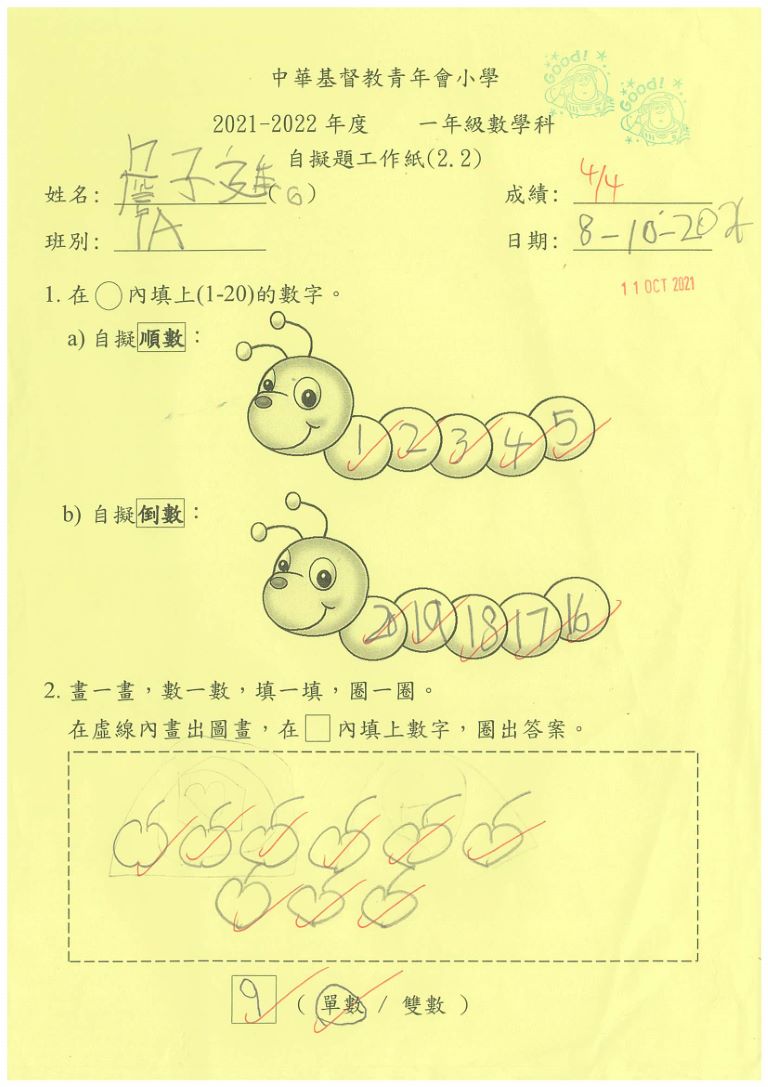 中華基督教青年會小學
Good!
Good!
2021-2022 年度 一年級數學科
自擬題工作紙(2.2)
姓名: 子雄 (6)
成績: 4/4
班別: 1A
日期: 8-10-202
11 OCT 2021
1. 在○內填上(1-20)的數字。
a) 自擬順數：
1 2 3 4 5
b) 自擬倒數：
20 19 18 17 16
2. 畫一畫，數一數，填一填，圈一圈。
在虛線內畫出圖畫，在□內填上數字，圈出答案。
9 ( 單數 / 雙數 )